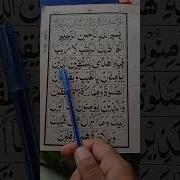 بِسْمِ اللّٰهِ الرَّحْمٰنِ الرَّحِيْمِ
الٓمّٓ ذٰلِكَ الْكِتٰبُ لَا رَيْبَ
فِيْهِ هُدًى لِّلْمُتَّقِيْنَ الَّذِيْنَ
يُؤْمِنُوْنَ بِالْغَيْبِ وَيُقِيْمُوْنَ
الصَّلٰوةَ وَمِمَّا رَزَقْنٰهُمْ يُنْفِقُوْنَ
وَالَّذِيْنَ يُؤْمِنُوْنَ بِمَآ اُنْزِلَ
اِلَيْكَ وَمَآ اُنْزِلَ مِنْ قَبْلِكَ
وَبِالْاٰخِرَةِ هُمْ يُوْقِنُوْنَ